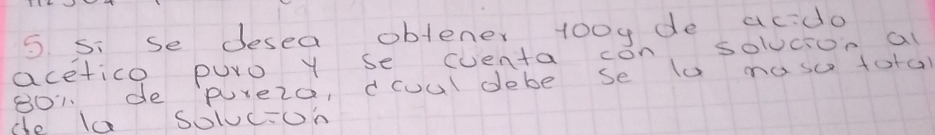 5. Si se desea obtener 100g de acido
acético puro y se cuenta con solución al
80% de pureza, ¿cual debe se la masa total
de la solución